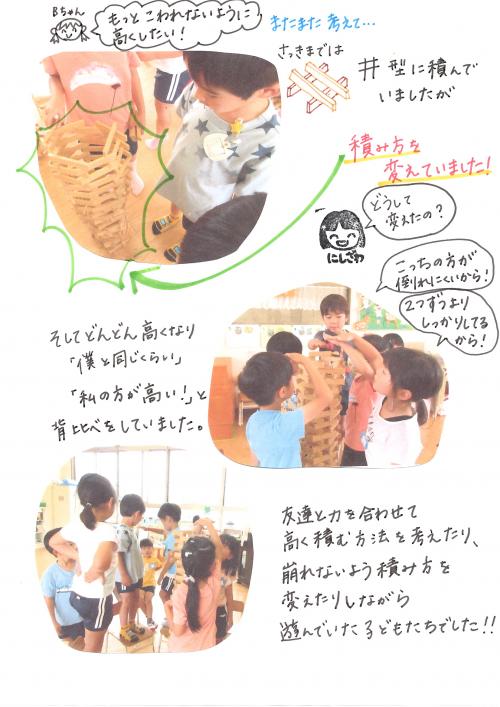 Bちゃん
もっとこわれないように
高くしたい！
またまた考えて…
さっきまでは
井型に積んで
いましたが
積み方を
変えていました！
どうして
変えたの？
にしざわ
こっちの方が
倒れにくいから！
2つずつより
しっかりしてる
から！
そしてどんどん高くなり
「僕と同じくらい」
「私の方が高い！」と
背比べをしていました。
友達と力を合わせて
高く積む方法を考えたり、
崩れないよう積み方を
変えたりしながら
遊んでいた子どもたちでした!!